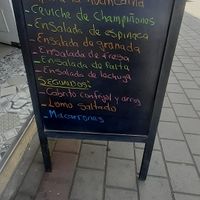 a la Huancaina
- Ceviche de Champiñones
- Ensalada de espinaca
- Ensalada de granada
- Ensalada de fresa
- Ensalada de Palta
- Ensalada de lechuga
SEGUNDOS:
- Cabrito con frijol y arroz
- Lomo Saltado
- Macarrones